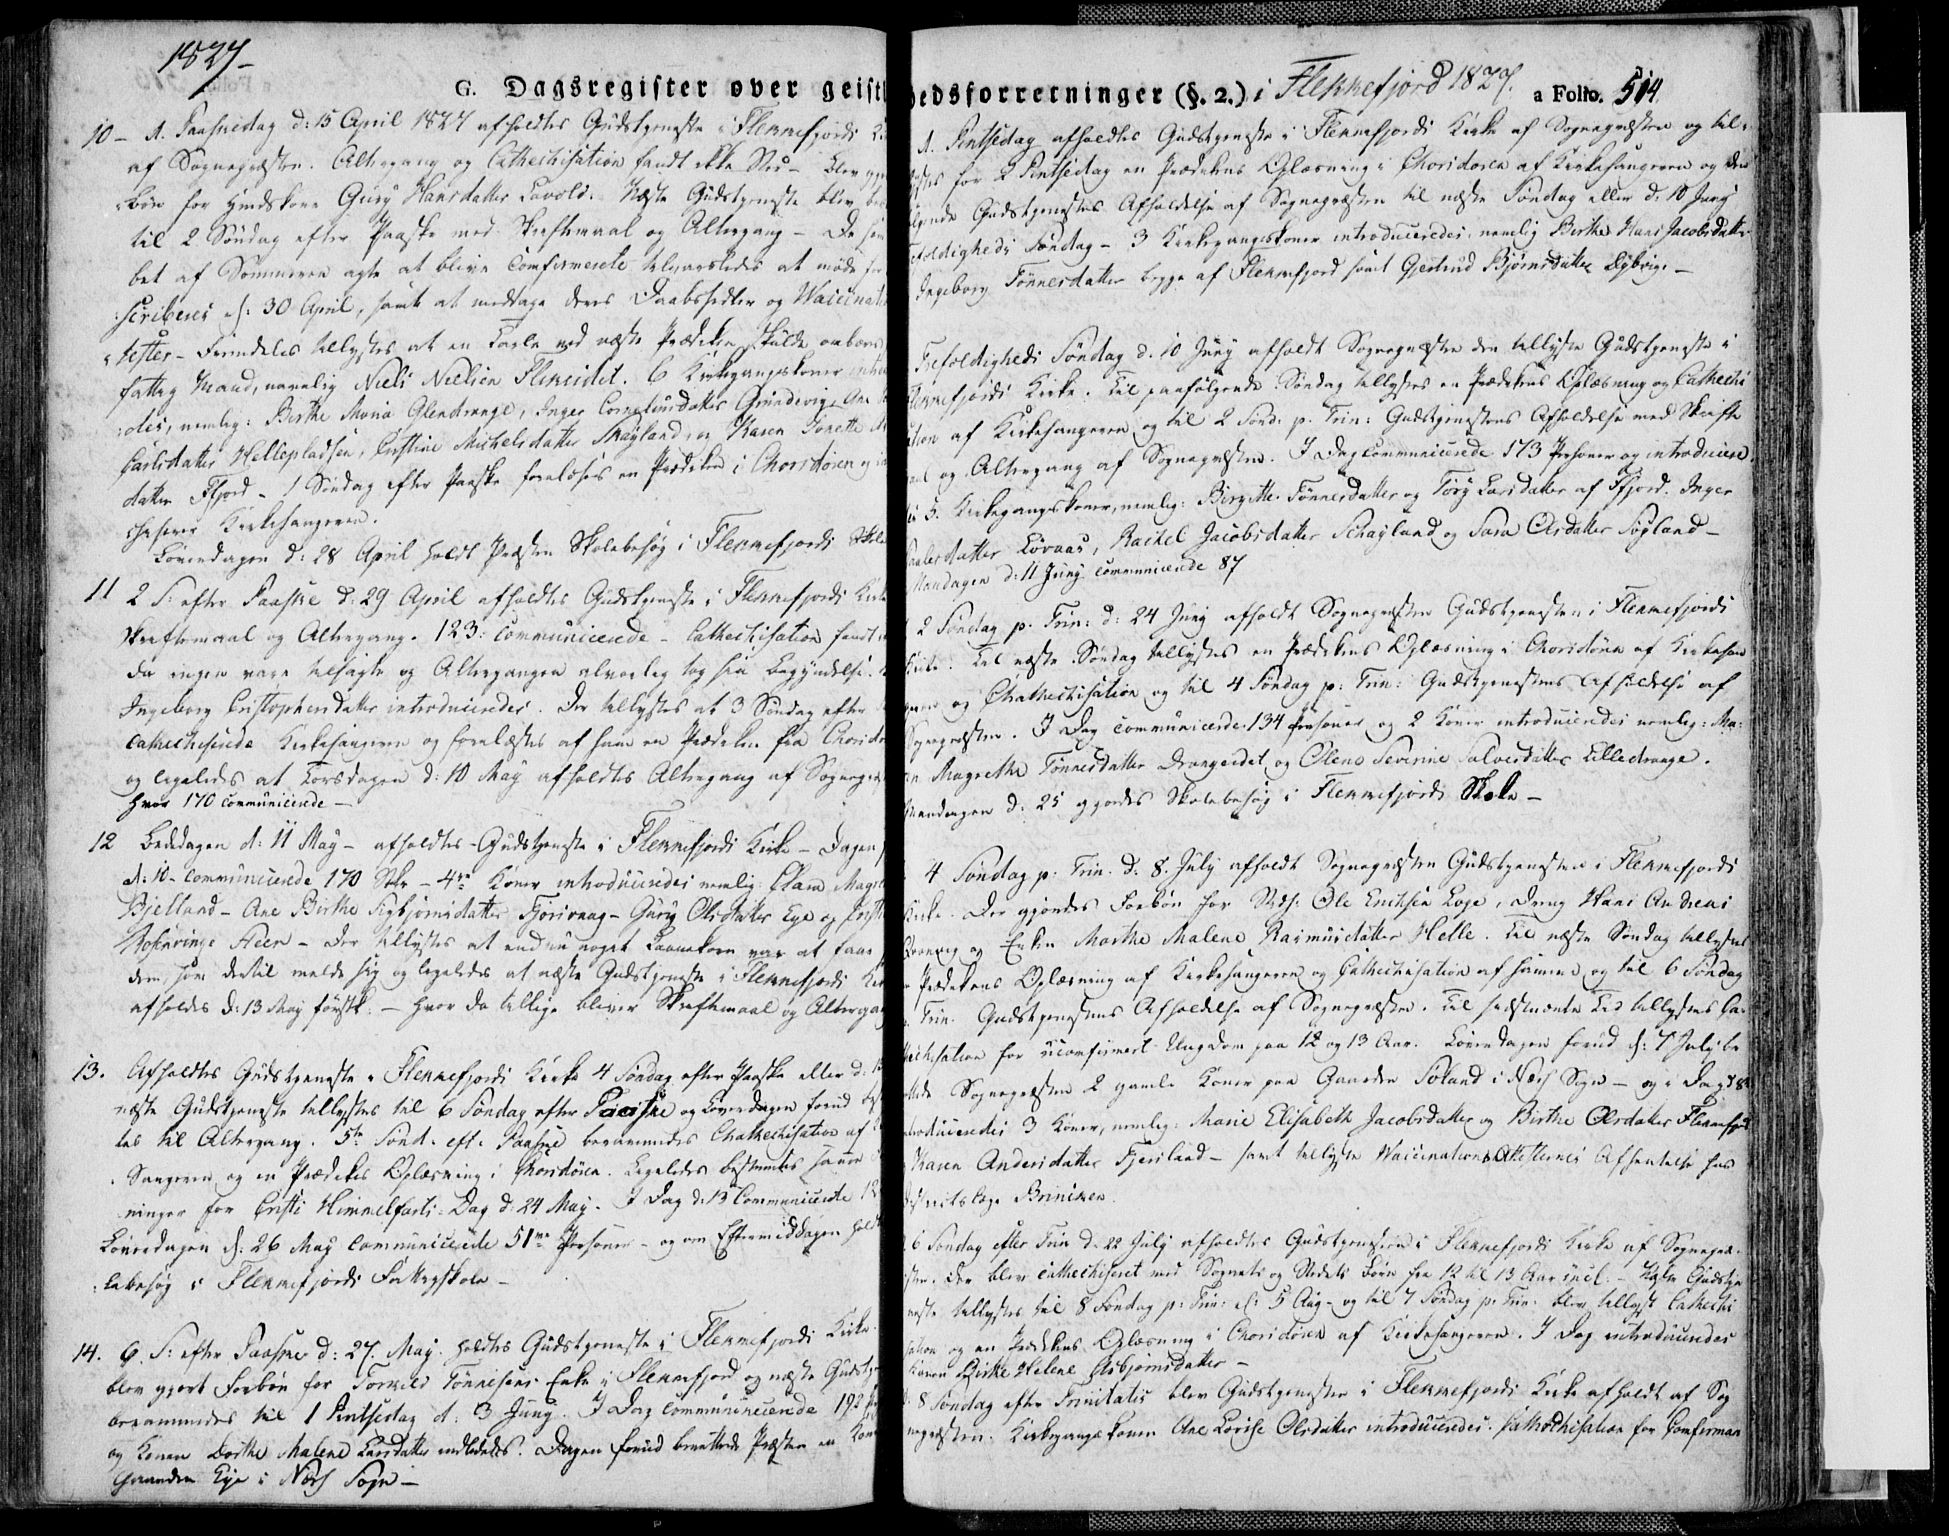 1827-
G. Dagsregister over geistl
10- 1. Paaskedag d: 15 April 1827 afholdtes Gudstjeneste i Flekkefjords
af Sognepræsten. Altergang og Cathechisation fandt ikke Sted - Blev
bøn for Huuskone Gury Hansdatter Lavold. Næste Gudstjeneste blev
til 2 Søndag efter Paaske med Skriftemaal og Altergang - De
bet af Sommeren agte at blive Comfirmerede tilvarsledes at møde
scriberes d: 30 April, samt at medtage deres Daabsedler og Waccinat
tester - Fremdeles tillystes at en Tavle ved næste Prædiken skulde ombæres
fattig Mand, navnlig Niels Nielsen Fleseidet. 6 Kirkegangskoner
des, nemlig: Birthe Maria Glendrange, Inger Corneliusdatter Grundevig, Ane
Carlsdatter Hellepladsen, Cristine Michelsdatter Skayland, og Karen Tonette
datter Ffjord - 1 Søndag efter Paaske forelæses en Prædiken i Chorsdøren
Kirkesangeren.
Løverdagen d: 28 April holdt Præsten Skolebesøg i Flekkefjords
11 2 S: efter Paaske d: 29 April afholdtes Gudstjeneste i Flekkefjords
Skriftemaal og Altergang. 123: communicerede - Cathechisation fandt
da ingen vare tilsagte og Altergangen alvorlig tog sin Begyndelse.
Ingeborg Cristophersdatter introduceredes. Der tillystes at 3 Søndag efter
cathechiserede Kirkesangeren og forelæstes af ham en Prædiken fra
og ligeledes at Torsdagen d: 10 May afholdtes Altergang af
hvor 170 communicerede -
12 Bededagen d: 11 May - afholdtes Gudstjeneste i Flekkefjords Kirke - Dagen
d: 10 - communicerede 170 Stkr - 4re Koner introduceredes nemlig:
Bjelland - Ane Birthe Sigbjørnsdatter Fjorivaag - Gurig Olsdatter Eye og
Heen - Der tillystes at endnu noget Laanekorn var at faae
dem, som dertil melde sig og ligeledes at næste Gudstjeneste i Flekkefjords
afholdes d: 13 May førstk: - hvor da tillige bliver Skriftemaal og
13. Afholdtes Gudstjeneste i Flekkefjords Kirke 4 Søndag efter Paaske eller d:
næste Gudstjeneste tillystes til 6 Søndag efter Paaske og Løverdagen forud
tes til Altergang. 5te Sønd. eft. Paaske berammedes Chathechisation af
Sangeren og en Prædikes Oplæsning i Chorsdøren. Ligeledes bestemtes
ninger for Cristi Himmelfarts: Dag d: 24 May. I Dag d: 13 Communicerede
Løverdagen d: 26 May communicerede 51 Personer - og om Eftermiddagen
lebesøg i Flekkefjords Fattigskole -
14. 6. S: efter Paaske d: 27. May. holdtes Gudstjeneste i Flekkefjords Kirke.
blev gjort Forbøn for Torkild Tønnesens Enke i Flekkefjord og næste
berammedes til 1 Pintsedag d: 3 Juny. I Dag communicerede 192
og Konen Dorthe Malene Larsdatter indlededes. Dagen forud berettede Præsten en
Gaarden Eye i Næs Sogn -
hedsforretninger (§. 2.) i Flekkefjord 1827. a Folio. 514.
1. Pintsedag afholdtes Gudstjeneste i Flekkefjords Kirke af Sognepræsten og til-
for 2 Pintsedag en Prædikens Oplæsning i Chorsdøren af Kirkesangeren og den
Gudstjenestes Afholdelse af Sognepræsten til næste Søndag eller d: 10 Juny
foldigheds Søndag - 3 Kirkegangskoner introduceredes nemlig Birthe Hans Jacobsdatter
Ingeborg Tønnesdatter begge af Flekkefjord samt Gjertrud Bjørnsdatter Dybvig. -
Trefoldigheds Søndag d. 10 Juny afholdt Sognepræsten den tillyste Gudstjeneste i
Flekkefjords Kirke. Til paafølgende Søndag tillystes en Prædikens Oplæsning og Cathechi
sation af Kirkesangeren og til 2 Sønd. p. Trin: Gudstjenestens Afholdelse med Skrifte
og Altergang af Sognepræsten. I Dag Communicerede 173 Personer og introducere
5. Kirkegangskoner, nemlig: Birgitte Tønnesdatter og Tory Larsdatter af Ffjord. Inger
datter Løvaas, Rachel Jacobsdatter Schayland og Sara Olsdatter Søyland -
Mandagen d: 11 Juny communicerede 87
2 Søndag p. Trin: d: 24 Juny afholdt Sognepræsten Gudstjenesten i Flekkefjords
Kirke. Til næste Søndag tillystes en Prædikens Oplæsning i Chorsdøren af Kirkesan
geren og Chathechisation og til 4 Søndag p: Trin: Gudstjenestens Afholdelse af
Sognepræsten. I Dag communicerede 134 Personer og 2 Koner introduceredes nemlig: Ma-
Magrethe Tønnesdatter Drangeidet og Olene Severine Salvesdatter Lilledrange.
Mandagen d: 25 gjordes Skolebesøg i Flekkefjords Skole -
4 Søndag p: Trin. d. 8. July afholdt Sognepræsten Gudstjenestene i Flekkefjords
Kirke. Der gjordes Forbøn for Ole Erichsen Loge, Dreng Hans Andreas
og Enken Marthe Malene Rasmusdatter Helle. Til næste Søndag tillystes
Prædikens Oplæsning af Kirkesangeren og Cathechisation af samme og til 6 Søndag
p. Trin. Gudstjenestens Afholdelse af Sognepræsten. Til sidstnævnte Tid tillystes Ca-
thechisation for ucomfirmert Ungdom paa 12 og 13 Aar. Løverdagen forud d: 7 July be
rettede Sognepræsten 2 gamle Koner paa Gaarden Søland i Næs Sogn - og i Dag d 8
introduceredes 3 Koner, nemlig: Marie Elisabeth Jacobsdatter og Birthe Olsdatter Flekkefjord
Karen Andersdatter Fjersland - samt tillyste Waccinations Attesternes Afhentelse hos
Districtslæge Brinchen.
6 Søndag efter Trin d. 22 July afholdtes Gudstjenesten i Flekkefjords Kirke af Sognepræ-
sten. Der blev cathechiseret med Sognets og Stedets Børn fra 12 til 13 Aar incl. - Gudstje
neste tillystes til 8 Søndag p: Trin: d: 5 Aug - og til 7 Søndag p. Trin. blev tillyst Cathechi
sation og en Prædikens Oplæsning i Chorsdøren af Kirkesangeren. I Dag introduceredes
Konen Birthe Helene Asbjørnsdatter -
8 Søndag efter Trinitatis blev Gudstjenesten i Flekkefjords Kirke afholdt af Sog
nepræsten. Kirkegangskonen Ane Lovise Olsdatter introduceredes. Cathechisation for Comfirman